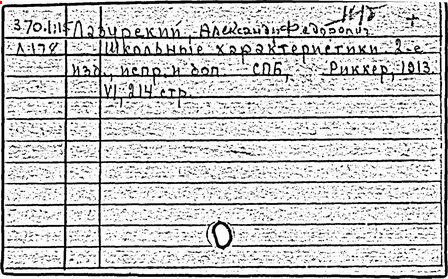 370.1:15 Лазурский, Александр Федорович. +
Л-174 Школьные характеристики 2-е
изд., испр. и доп. СПБ, Риккер, 1913.
VI, 214 стр.